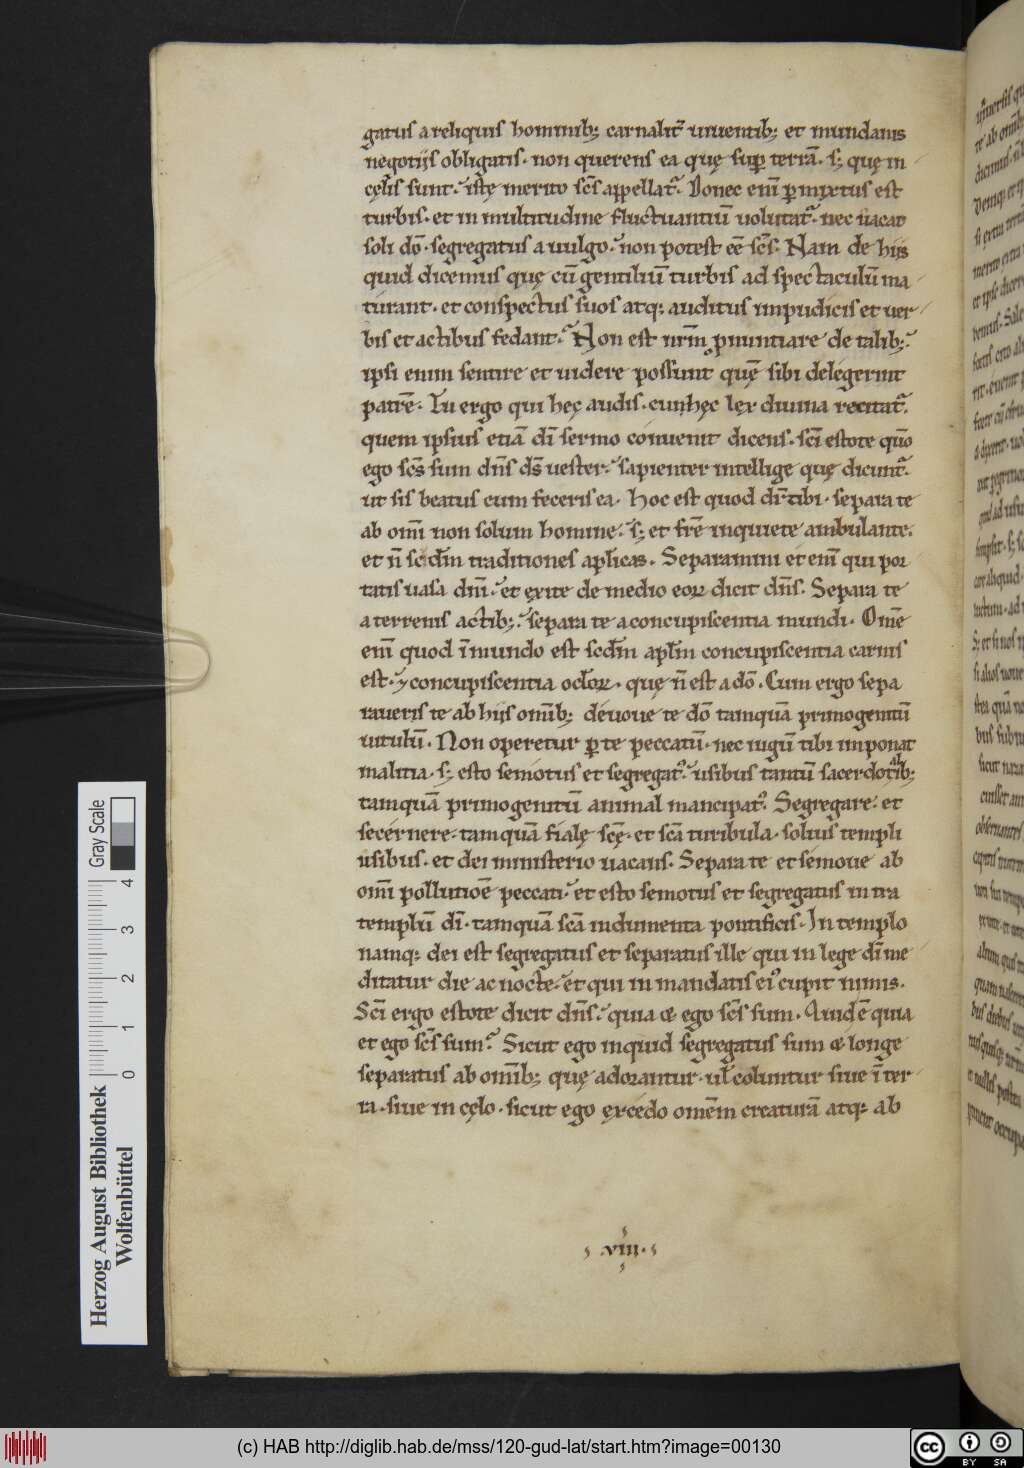 gatus a reliquis hominib; carnalit̄ uiuentib; et mundanis
negotijs obligatis. non querens ea quę sup̄ terrā. s; quę in
cęlis sunt. istę merito scs̄ appellat᷑. Donec enī p̄mixtus est
turbis. et in multitudine fluctuantiū uolutat᷑. nec uacat
soli dō. segregatus a uulgo. non potest eē scs̄. Nam de hijs
quid dicemus quę cū gentiliū turbis ad spectaculū ma
turant. et conspectus suos atq; auditus impudicis et uer
bis et actibus fedant. Non est nr̄m pnuntiare de talib;.
ipsi enim sentire et uidere possunt quē sibi delegerint
patrē. Tu ergo qui hęc audis. cum hęc lex diuina recitat᷑.
quem ipsius etiā dī sermo conuenit dicens. scī estote qūo
ego scs̄ sum dn̄s ds̄ uester. sapienter intellige quę dicunt᷑.
ut sis beatus cum feceris ea. Hoc est quod dr̄ tibi. separa te
ab om̄i non solum homine. s; et fr̄e inquiete ambulante.
et n̄ scdm̄ traditiones ap̄licas. Separamini et enī qui por
tatis uasa dnī. et exite de medio eoꝝ dicit dn̄s. Separa te
a terrenis actib;. separa te a concupiscentia mundi. Om̄e
enī quod īmundo est scdm̄ ap̄lm concupiscentia carnis
est. ⁊ concupiscentia oclōꝝ. quę n̄ est a dō. Cum ergo sepa
raueris te ab hijs om̄ib; deuoue te dō tamquā primogenitū
uitulū. Non operetur p̄ te peccatū. nec iugū tibi imponat
malitia. s; esto semotus et segregat᷒. usibus tantū sacerdotalib;
tamquā primogenitū animal mancipat᷒. Segregare. et
secernere. tamquā fialę scę̄. et scā turibula. solius templi
usibus. et dei ministerio uacans. Separa te et semoue ab
om̄i pollutiōe peccati. et esto semotus et segregatus intra
templū dī. tamquā scā indumenta pontificis. In templo
namq; dei est segregatus et separatus ille qui in lege dī me
ditatur die ac nocte. et qui in mandatis ei᷒ cupit nimis.
Scī ergo estote dicit dn̄s. quia & ego scs̄ sum. Quid ē quia
et ego scs̄ sum. Sicut ego inquid segregatus sum & longe
separatus ab om̄ib; quę adorantur. ul̄ coluntur siue ī ter
ra. siue in cęlo. sicut ego excedo om̄em creaturā atq; ab
.viii.
Herzog August Bibliothek
Wolfenbüttel
Gray Scale
0 1 2 3 4
(c) HAB http://diglib.hab.de/mss/120-gud-lat/start.htm?image=00130
cc BY SA